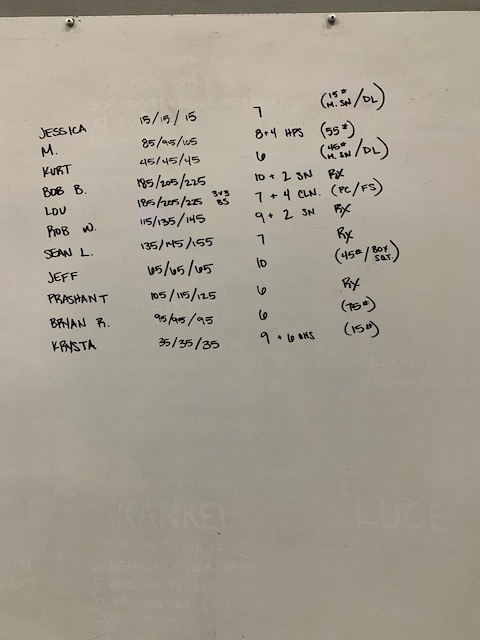 JESSICA 15/15/15 7 (15# M.SN/DL)
M. 85/95/105 8+4 HPS (55#)
KURT 45/45/45 6 (45# M.SN/DL)
BOB B. 185/205/225 10 + 2 SN RX
LOU 185/205/225 3v3 BS 7 + 4 CLN. (PC/FS)
ROB W. 115/135/145 9 + 2 SN RX
SEAN L. 135/145/155 7 RX
JEFF 65/65/65 10 (45#/BOX SQT.)
PRASHANT 105/115/125 6 RX
BRYAN R. 95/95/95 6 (75#)
KRYSTA 35/35/35 9 + 6 OHS (15#)
RANKEL LUCE